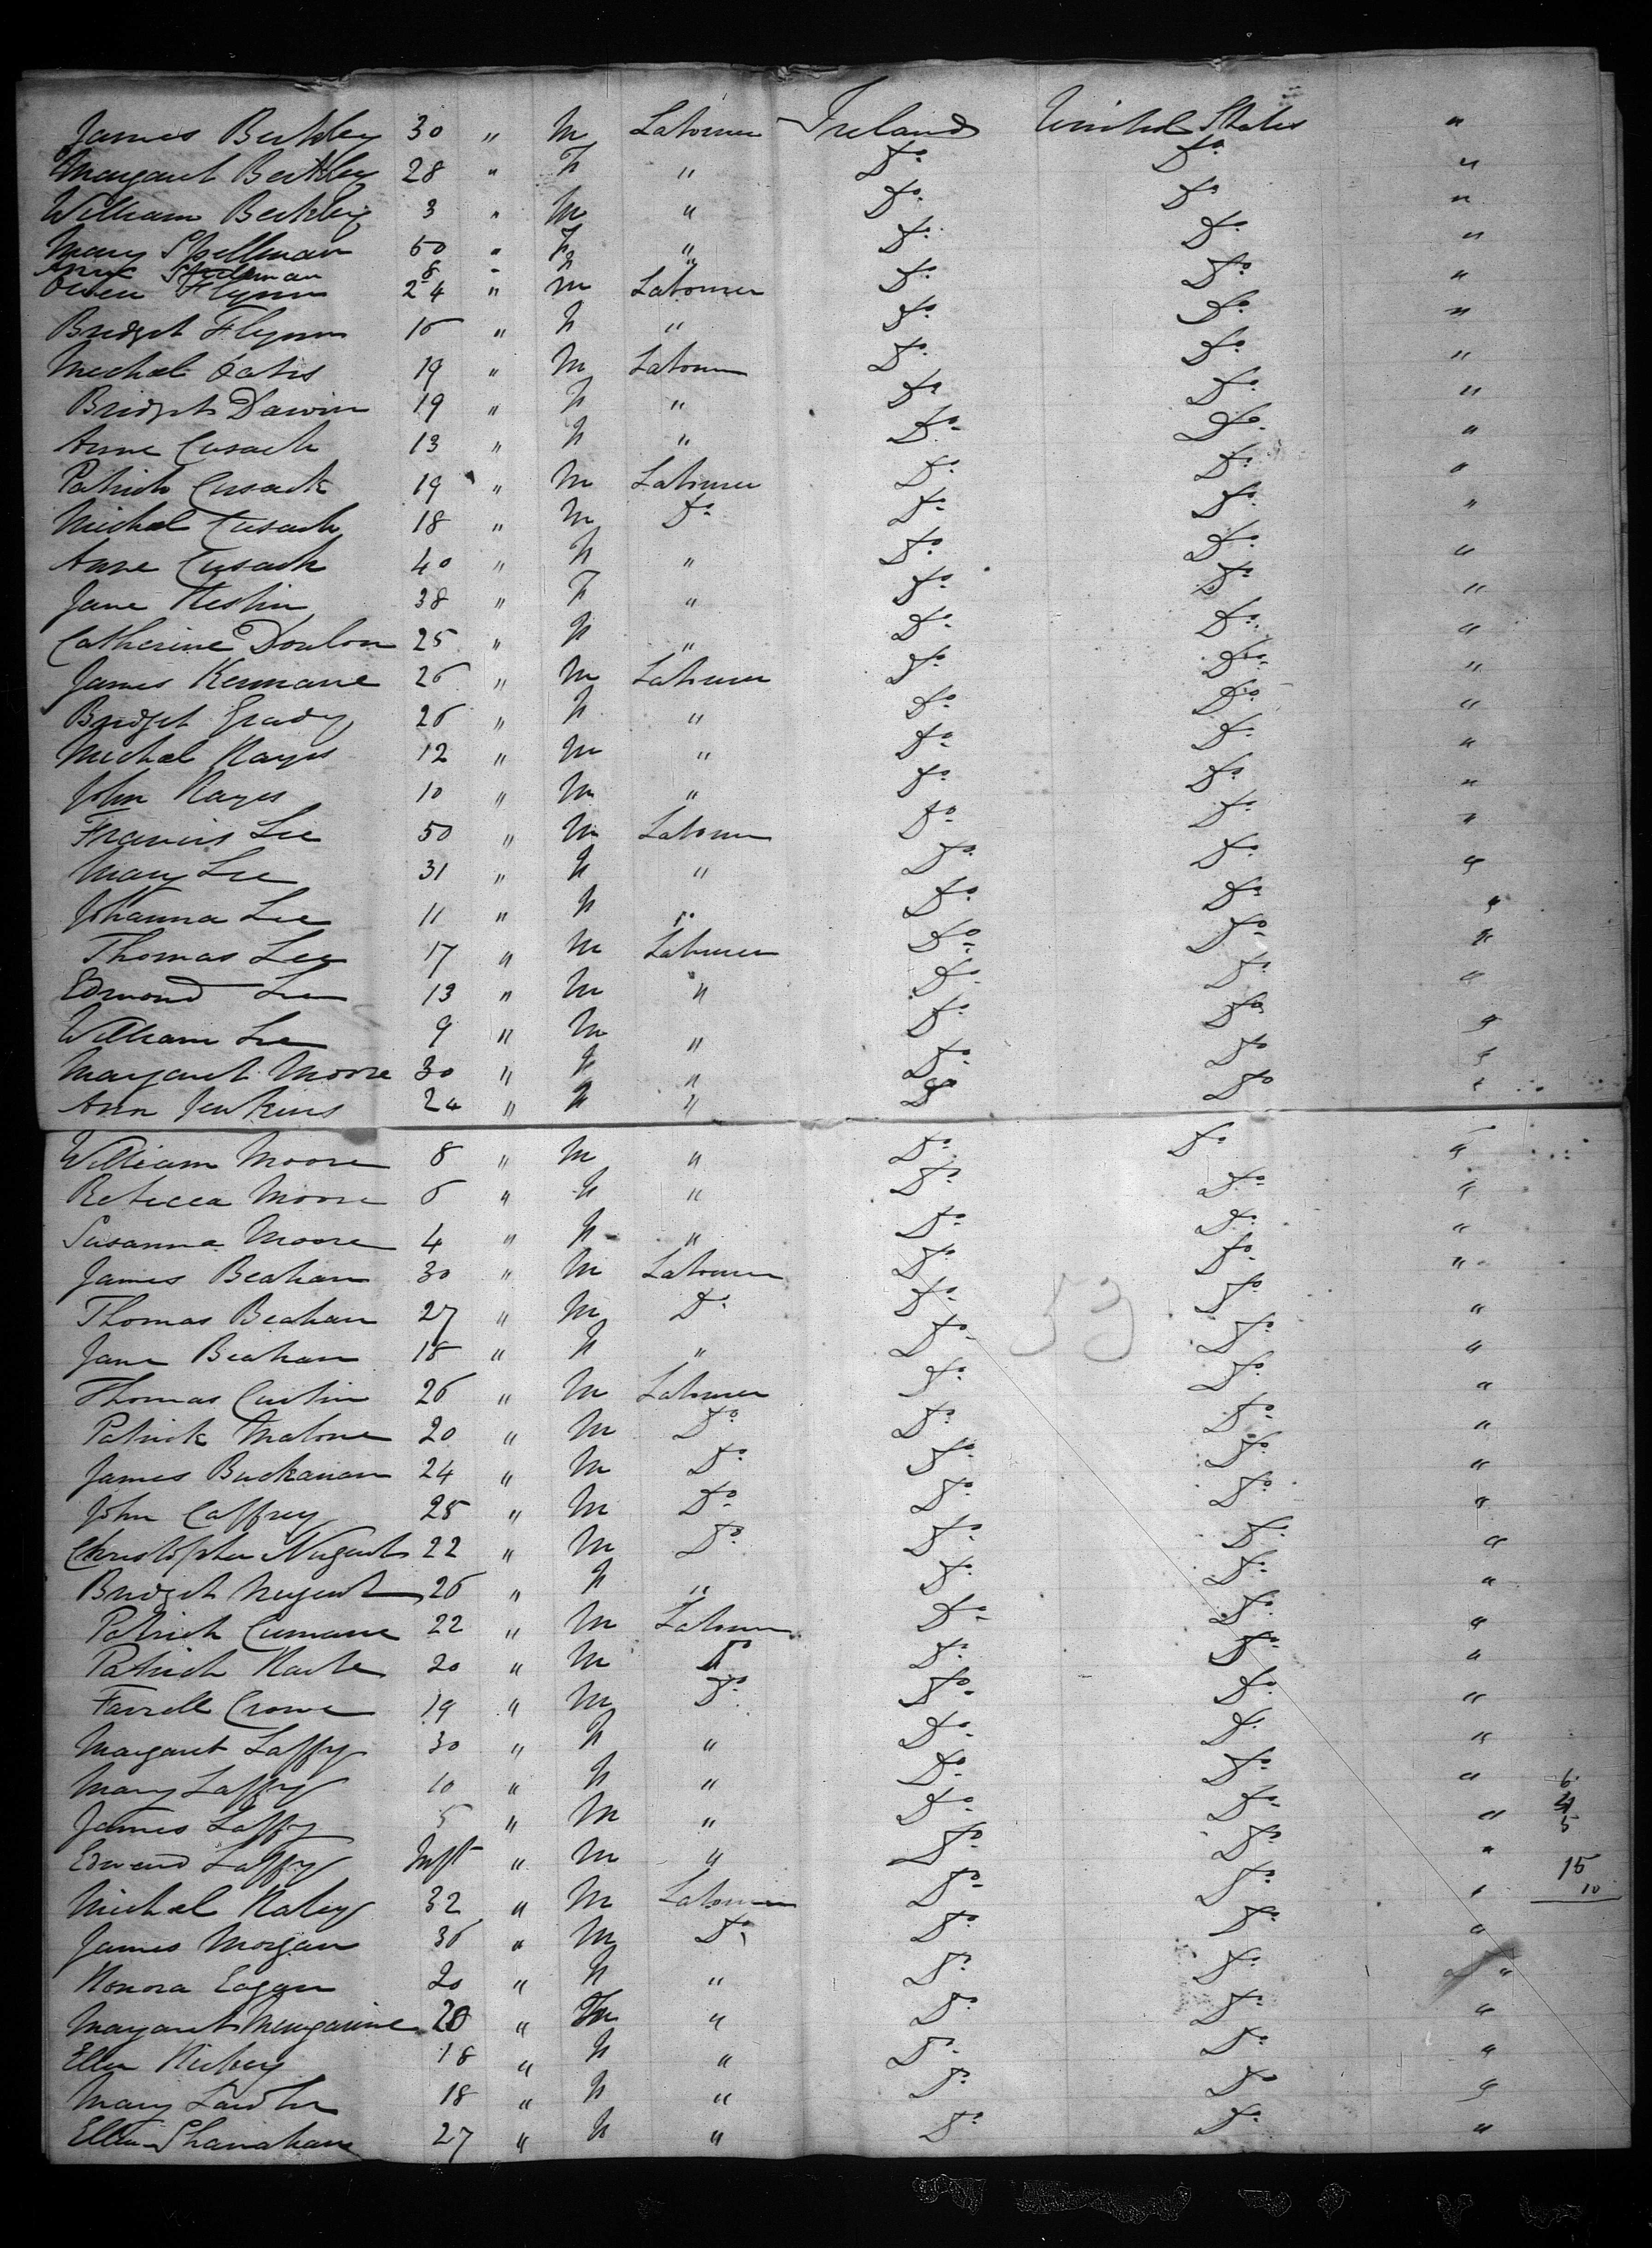 James Berkley 30 " M Labourer Ireland United States "
Margaret Berkley 28 " F " Do Do "
William Berkley 3 " M " Do Do "
Mary Spellman 50 " F " Do Do "
Anne Spellman 8 " F "
Owen Flynn 24 " M Labourer Do Do "
Bridget Flynn 16 " F " Do Do "
Michael Oatis 19 " M Labourer Do Do "
Bridget 19 " F " Do Do "
Anne Cusack 13 " F " Do Do "
Patrick Cusack 19 " M Labourer Do Do "
Michael Cusack 18 " M Do Do Do "
Anne Cusack 40 " F " Do Do "
Jane 38 " F " Do Do "
Catherine Donlon 25 " F " Do Do "
James Kennane 26 " M Labourer Do Do "
Bridget Grady 26 " F " Do Do "
Michael Hayes 12 " M " Do Do "
John Hayes 10 " M " Do Do "
Francis Lee 50 " M Labourer Do Do "
Mary Lee 31 " F " Do Do "
Johanna Lee 11 " F " Do Do "
Thomas Lee 17 " M Labourer Do Do "
Edmond Lee 13 " M " Do Do "
William Lee 9 " M " Do Do "
Margaret Moore 30 " F " Do Do "
Ann Jenkins 24 " F " Do Do "
William Moore 8 " M " Do Do "
Rebecca Moore 6 " F " Do Do "
Susanna Moore 4 " F " Do Do "
James Beahan 30 " M Labourer Do Do "
53
Thomas Beahan 27 " M Do Do Do "
Jane Beahan 18 " F " Do Do "
Thomas Curtin 26 " M Labourer Do Do "
Patrick Malone 20 " M Do Do Do "
James Buckanan 24 " M Do Do Do "
John Caffrey 25 " M Do Do Do "
Christopher Nugent 22 " M Do Do Do "
Bridget Nugent 26 " F " Do Do "
Patrick Cumane 22 " M Labourer Do Do "
Patrick Harte 20 " M Do Do Do "
Farrell Crowe 19 " M Do Do Do "
Margaret Laffy 30 " F " Do Do "
Mary Laffy 10 " F " Do Do " 6
James Laffy 5 " M " Do Do " 5
Edward Laffy Inft " M " Do Do " 15
Michael Haley 32 " M Labourer Do Do " 10
James Morgan 36 " M Do Do Do "
Honora Eagan 20 " F " Do Do "
Margaret 20 " " Do Do "
Ellen 18 " F " Do Do "
Mary Lawler 18 " F " Do Do "
Ellen Shanahan 27 " F " Do Do "